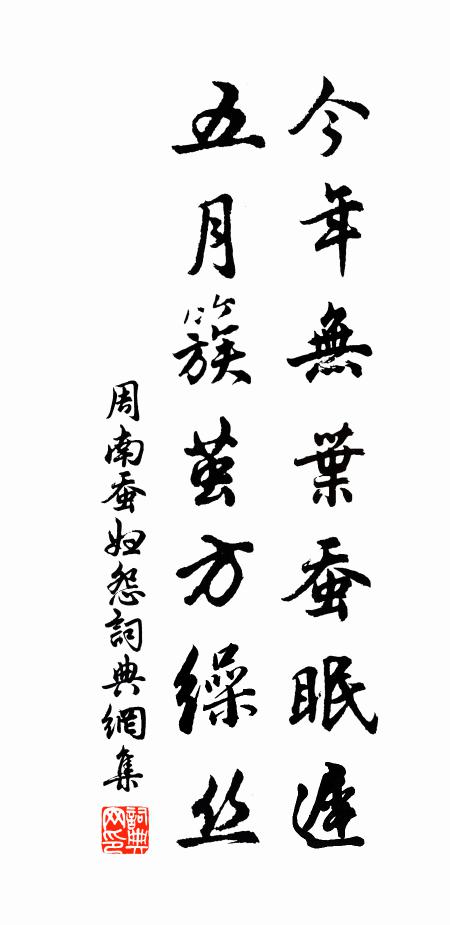 今年無葉蚕眠遲
五月簇茧方缲丝
周南蚕妇怨詞典網集
詞典网印